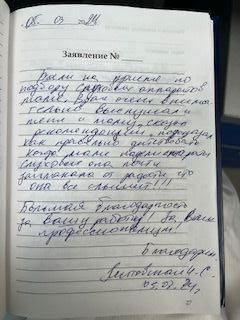 05. 03 24
Заявление №
Были на приеме по
подбору слуховых аппаратов
маме. Врач очень внима
тельно выслушал и
меня и маму, сказал
рекомендации, подсказал
как правильно действовать
Когда маме настроили
слуховые она почти
заплакала от радости что
она все слышит!!!
Большая благодарность
за Вашу работу! За Ваш
профессионализм!
Благодарим.
С.
05.03.24г